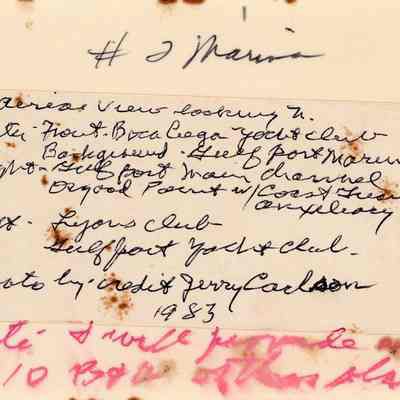 # 2 Marina
aerial view looking N.
te: Front - Boca Ciega Yacht Club
Background - Gulfport Marin
ght - Gulfport Main Channel
Osgood Point w/Coast Guar
auxiliary
Lyons Club
Gulfport Yacht Club.
oto by: credit Jerry Carlson
1983
te: I will provide
10 B&W